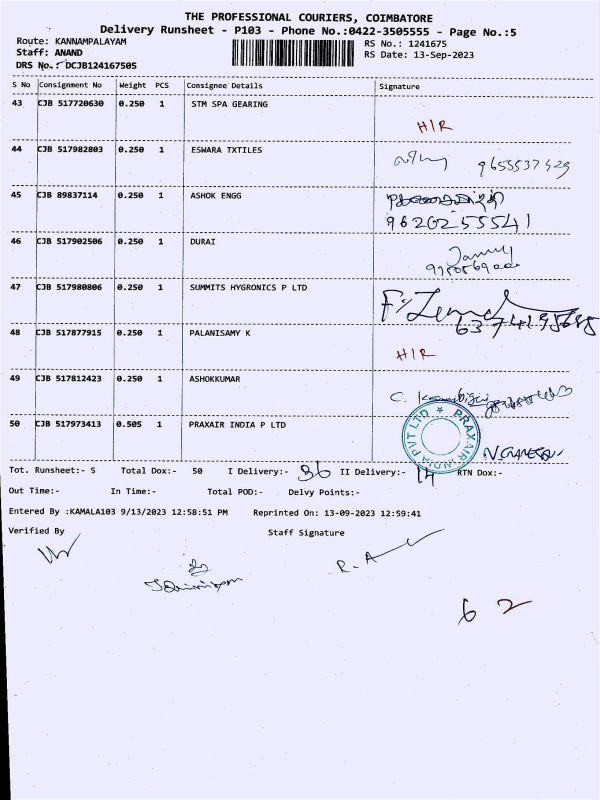 THE PROFESSIONAL COURIERS, COIMBATORE
Delivery Runsheet - P103 - Phone No.:0422-3505555 - Page No.:5
Route: KANNAMPALAYAM
RS No.: 1241675
Staff: ANAND
RS Date: 13-Sep-2023
DRS No.: DCJB124167505
S No Consignment No Weight PCS Consignee Details Signature
43 CJB 517720630 0.250 1 STM SPA GEARING
H/R
44 CJB 517982803 0.250 1 ESWARA TXTILES
9655537429
45 CJB 89837114 0.250 1 ASHOK ENGG
9620255541
46 CJB 517902506 0.250 1 DURAI
47 CJB 517980806 0.250 1 SUMMITS HYGRONICS P LTD
48 CJB 517877915 0.250 1 PALANISAMY K
H/R
49 CJB 517812423 0.250 1 ASHOKKUMAR
50 CJB 517973413 0.505 1 PRAXAIR INDIA P LTD
PRAXAIR INDIA PVT LTD
Tot. Runsheet:- 5 Total Dox:- 50 I Delivery:- 36 II Delivery:- 14 RTN Dox:-
Out Time:- In Time:- Total POD:- Delvy Points:-
Entered By :KAMALA103 9/13/2023 12:58:51 PM Reprinted On: 13-09-2023 12:59:41
Verified By Staff Signature
6 2